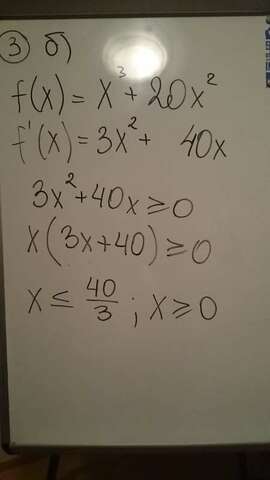 ③ б)
f(x) = x³ + 20x²
f'(x) = 3x² + 40x
3x² + 40x ≥ 0
x(3x + 40) ≥ 0
x ≤ 40/3 ; x ≥ 0